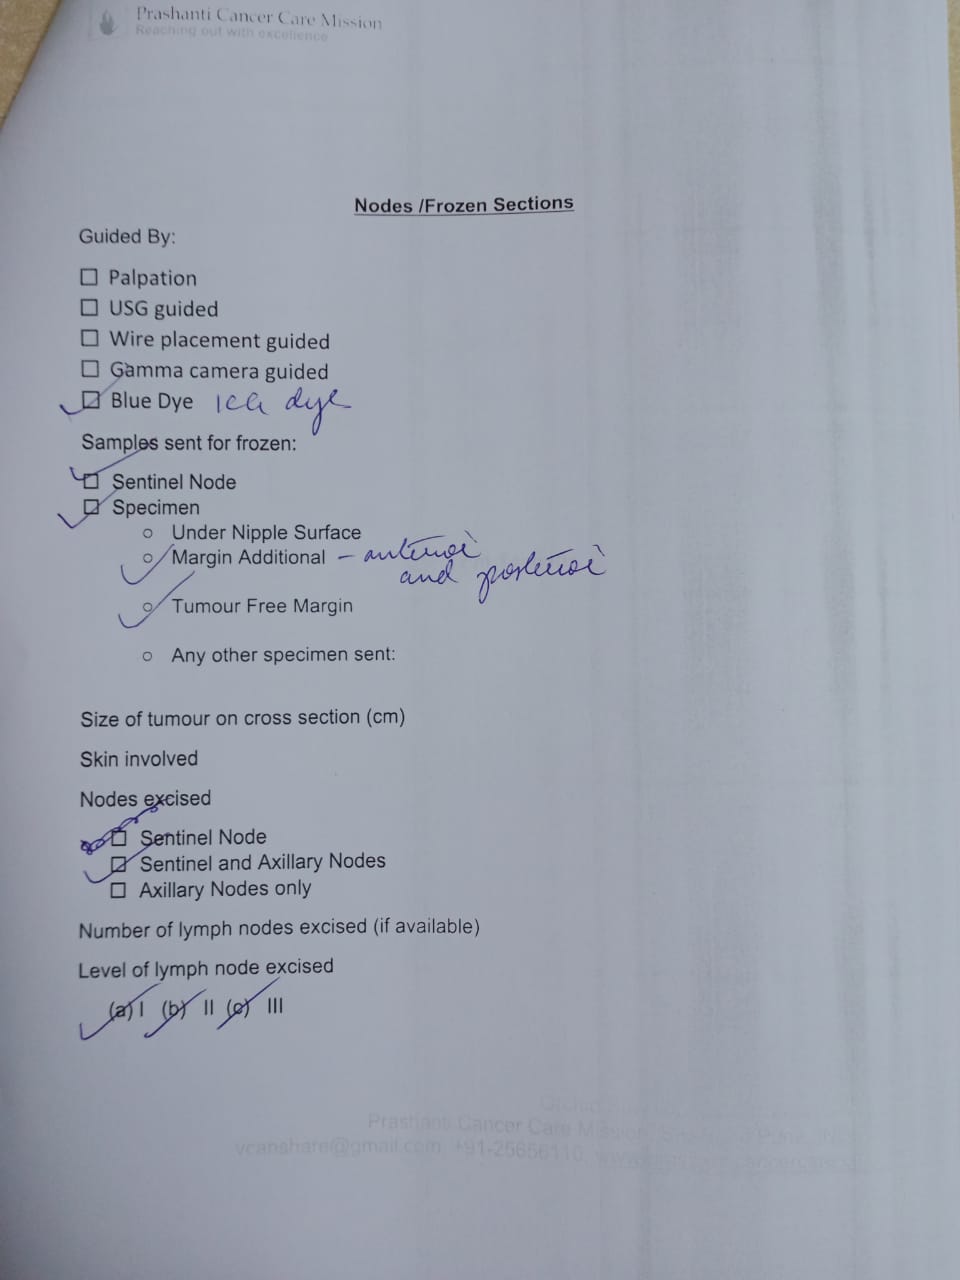 Prashanti Cancer Care Mission
Reaching out with excellence
Nodes /Frozen Sections
Guided By:
☐ Palpation
☐ USG guided
☐ Wire placement guided
☐ Gamma camera guided
☑ Blue Dye ICG dye
Samples sent for frozen:
☑ Sentinel Node
☑ Specimen
○ Under Nipple Surface
○ Margin Additional – anterior
and posterior
○ Tumour Free Margin
○ Any other specimen sent:
Size of tumour on cross section (cm)
Skin involved
Nodes excised
☐ Sentinel Node
☑ Sentinel and Axillary Nodes
☐ Axillary Nodes only
Number of lymph nodes excised (if available)
Level of lymph node excised
(a) I (b) II (c) III
Prashanti Cancer Care Mission
vcanshare@gmail.com +91-25656110